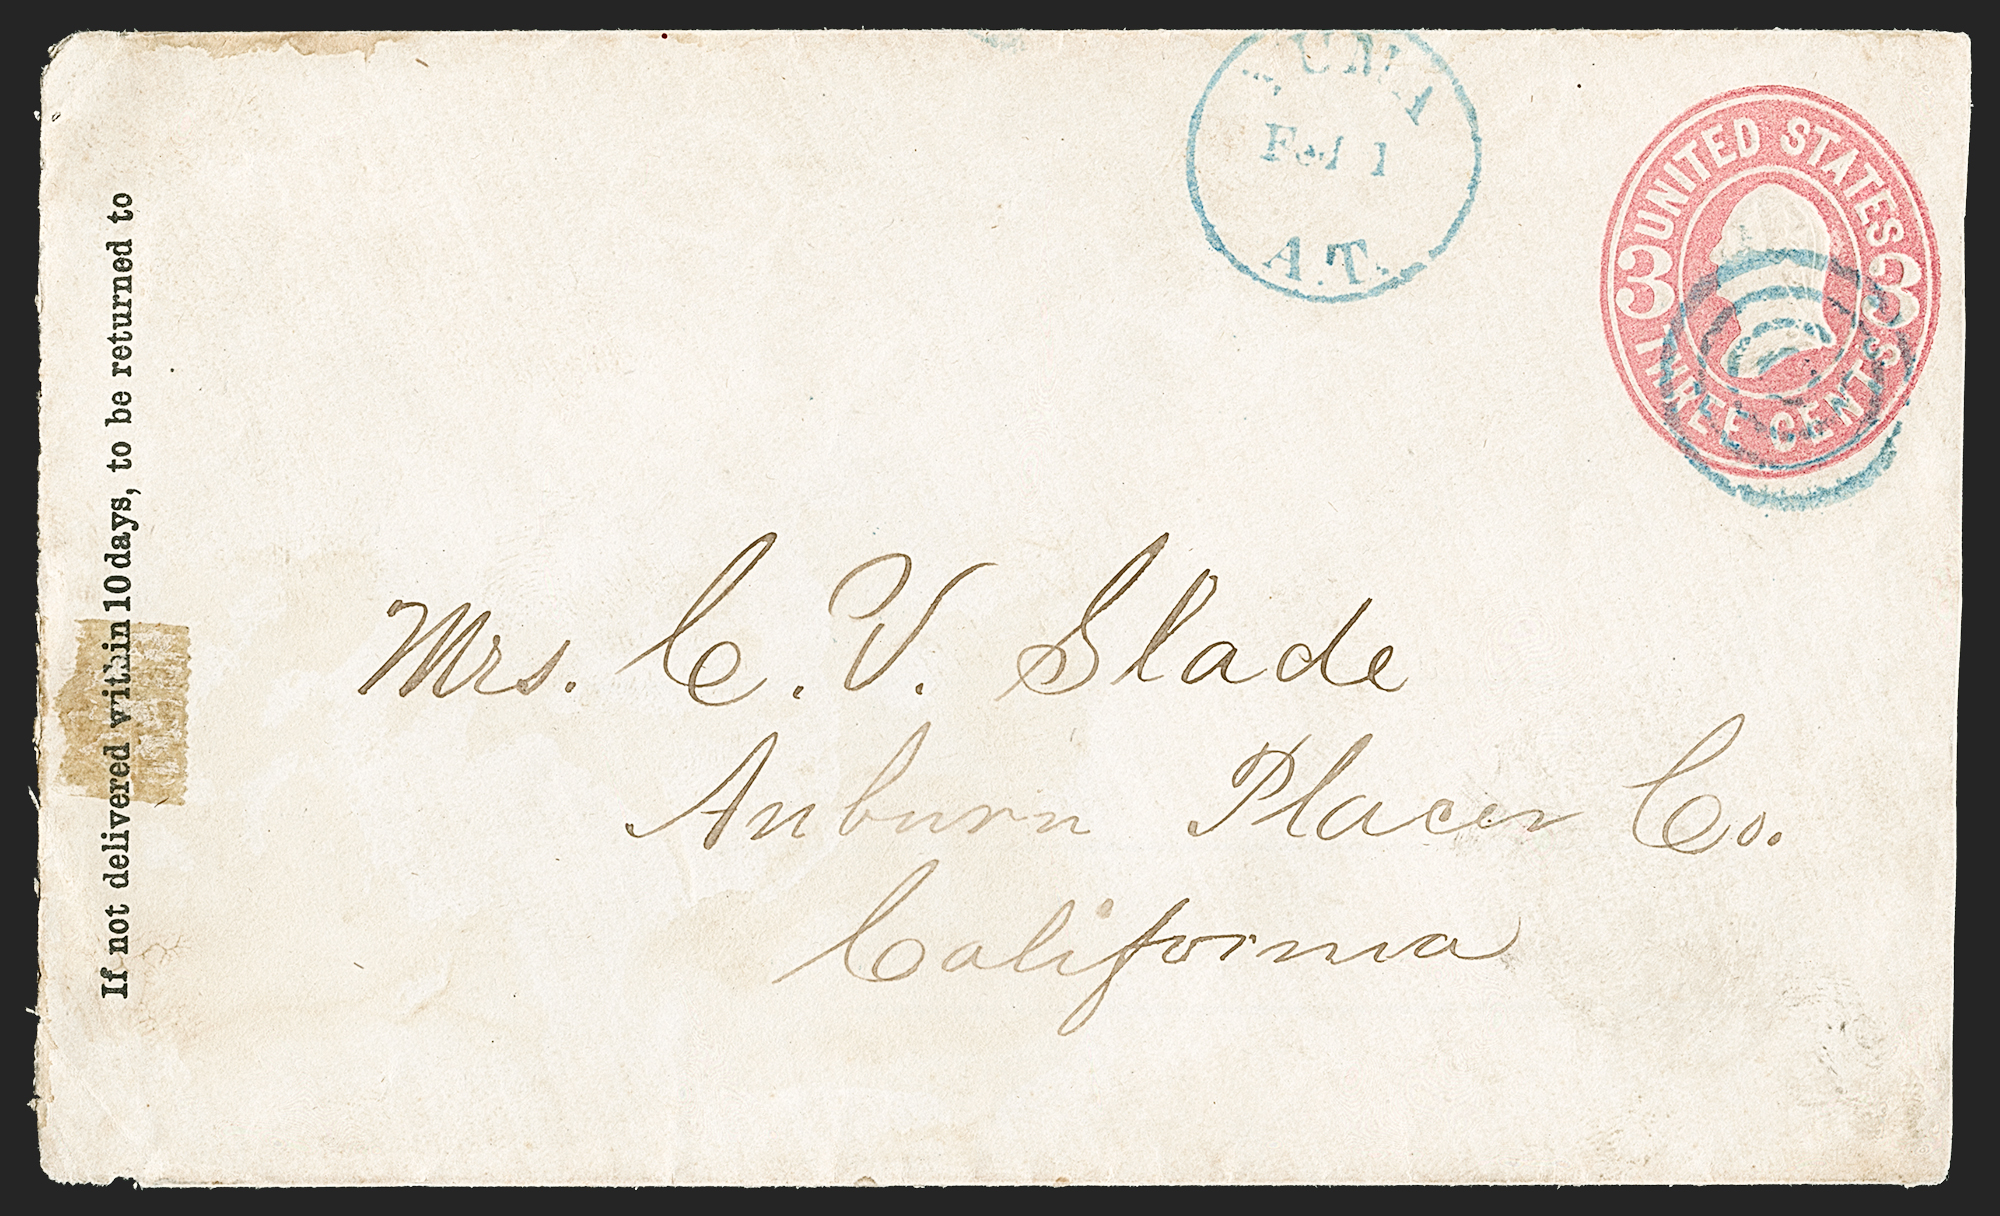 If not delivered within 10 days, to be returned to
Feb 1
A.T.
UNITED STATES
3 3
THREE CENTS
Mrs. C. V. Slade
Auburn Placer Co.
California